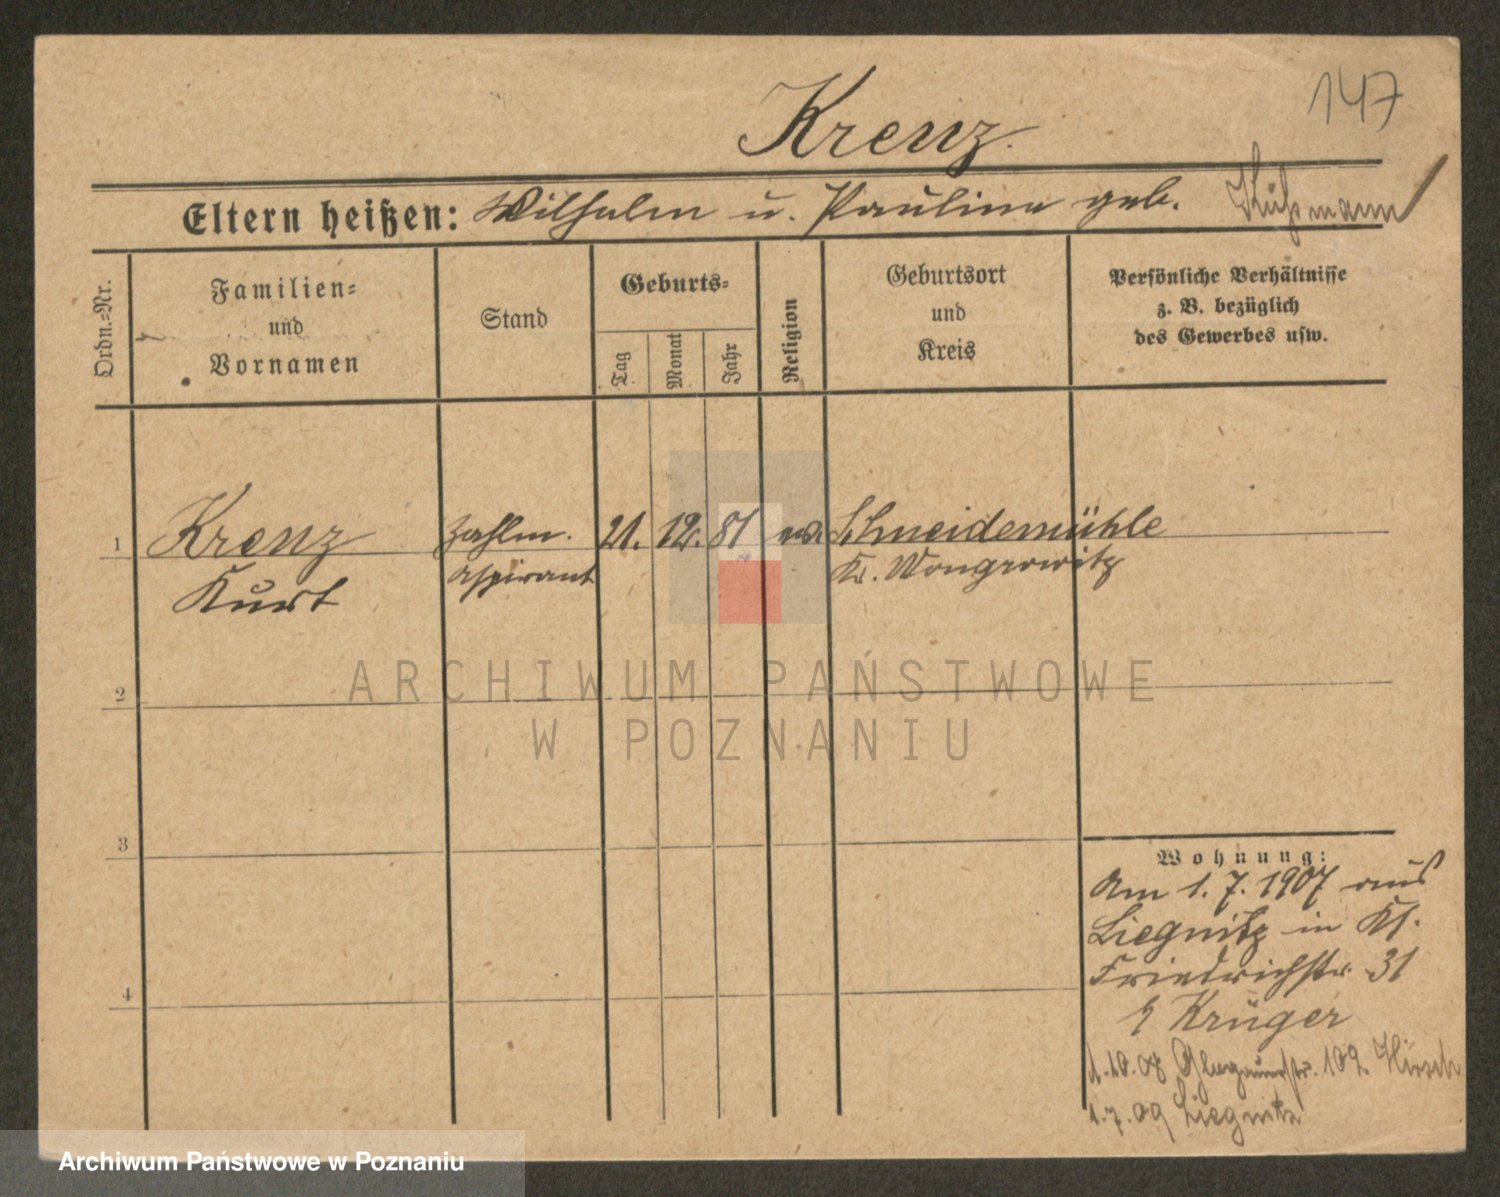 147
Krenz.
Eltern heißen: Wilhelm u. Paulina geb.
Ordn.=Nr.
Familien=
und
Vornamen
Stand
Geburts=
Tag
Monat
Jahr
Religion
Geburtsort
und
Kreis
Persönliche Verhältnisse
z. B. bezüglich
des Gewerbes usw.
1 Krenz Zahlm. 21. 12. 81 ev. Schneidemühle
Kurt aspirant Kr. Wongrowitz
2
3
4
Wohnung:
Am 1. 7. 1907 aus
Liegnitz in Kl.
Friedrichstr. 31
Krüger
1.10.08 Glogauerstr. 102 Hirsch
1.7.09 Liegnitz
ARCHIWUM PAŃSTWOWE
W POZNANIU
Archiwum Państwowe w Poznaniu